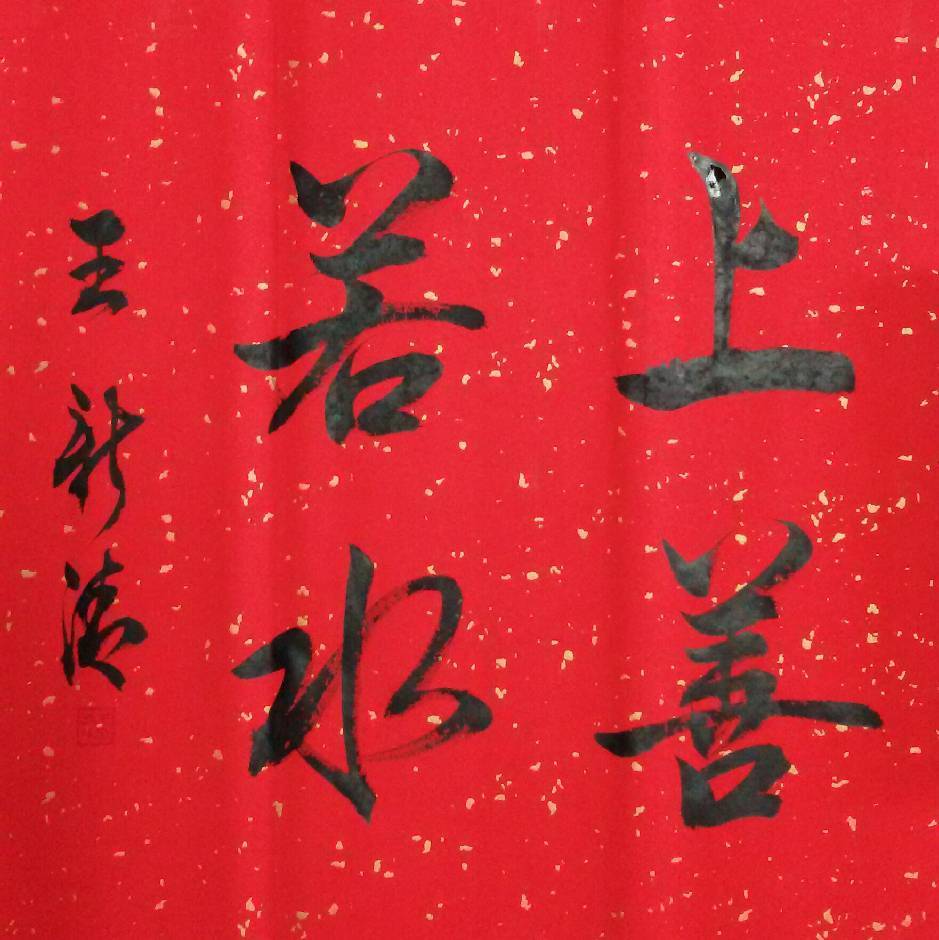 上善
若水
王新清